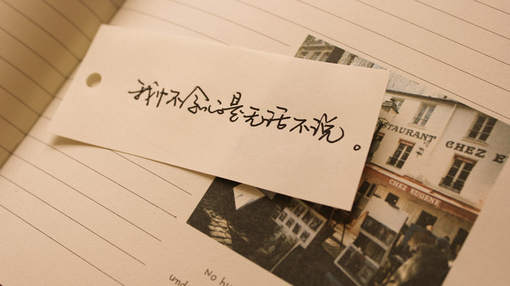 我们不会总是无话不说。
STAURANT CHEZ E
CHEZ EUGENE
No hu
und